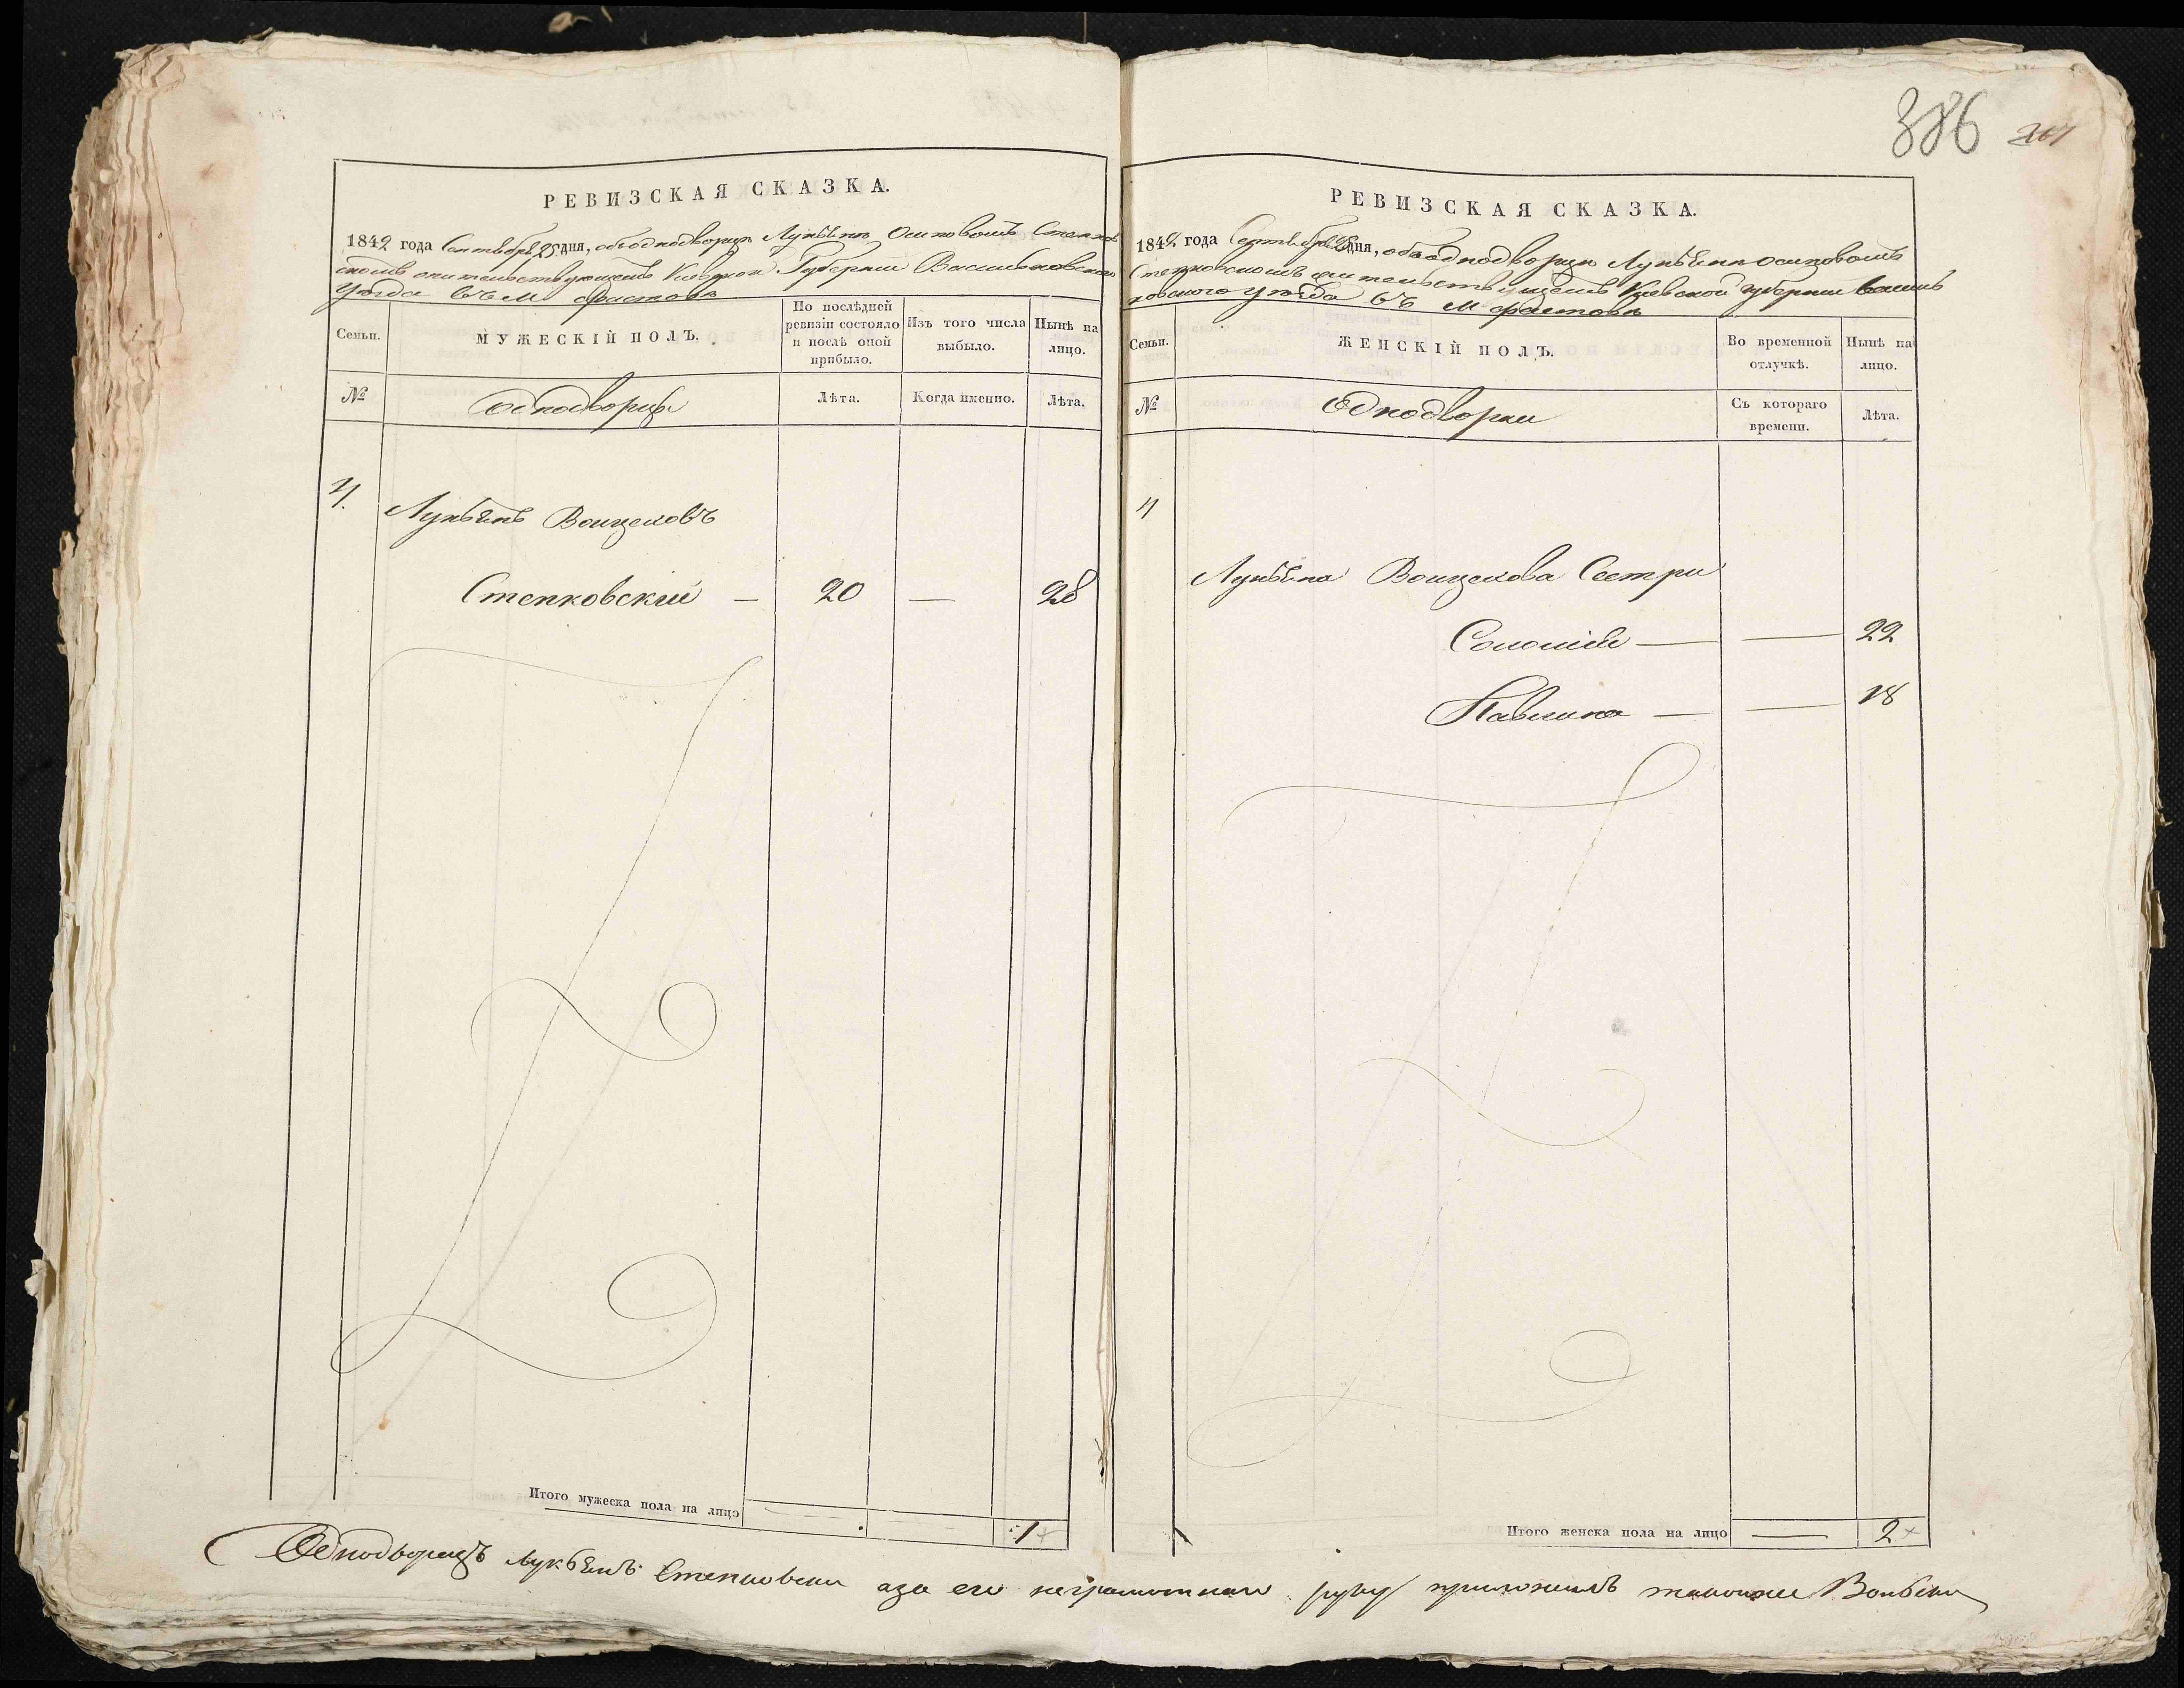 386 267
РЕВИЗСКАЯ СКАЗКА.
1842 года Сентября 25 дня, объ однодворцѣ Лукьянѣ Осиповомъ Степков
скомъ жительствующемъ Кіевской Губерніи Васильковского
Уѣзда въ М Фастовѣ
Семьи.
МУЖЕСКІЙ ПОЛЪ.
По послѣдней ревизіи состояло и послѣ оной прибыло.
Изъ того числа выбыло.
Нынѣ на лицо.
№
Однодворцы
Лѣта.
Когда именно.
Лѣта.
4.
Лукьянъ Войцеховъ
Степковскій — 20 — 28
Итого мужеска пола на лицо
1
РЕВИЗСКАЯ СКАЗКА.
1842 года Сентября 25 дня, объ однодворцѣ Лукьянѣ Осиповомъ
Степковскомъ жительствующемъ Кіевской губерніи Василь
ковского уѣзда въ М Фастовѣ
Семьи.
ЖЕНСКІЙ ПОЛЪ.
Во временной отлучкѣ.
Нынѣ на лицо.
№
Однодворки
Съ котораго времени.
Лѣта.
4
Лукьяна Войцехова Сестри
Соломія — — 22
Павлина — — 18
Итого женска пола на лицо — 2
Однодворецъ Лукьянъ Степковски а за его неграмотнаго руку приложилъ